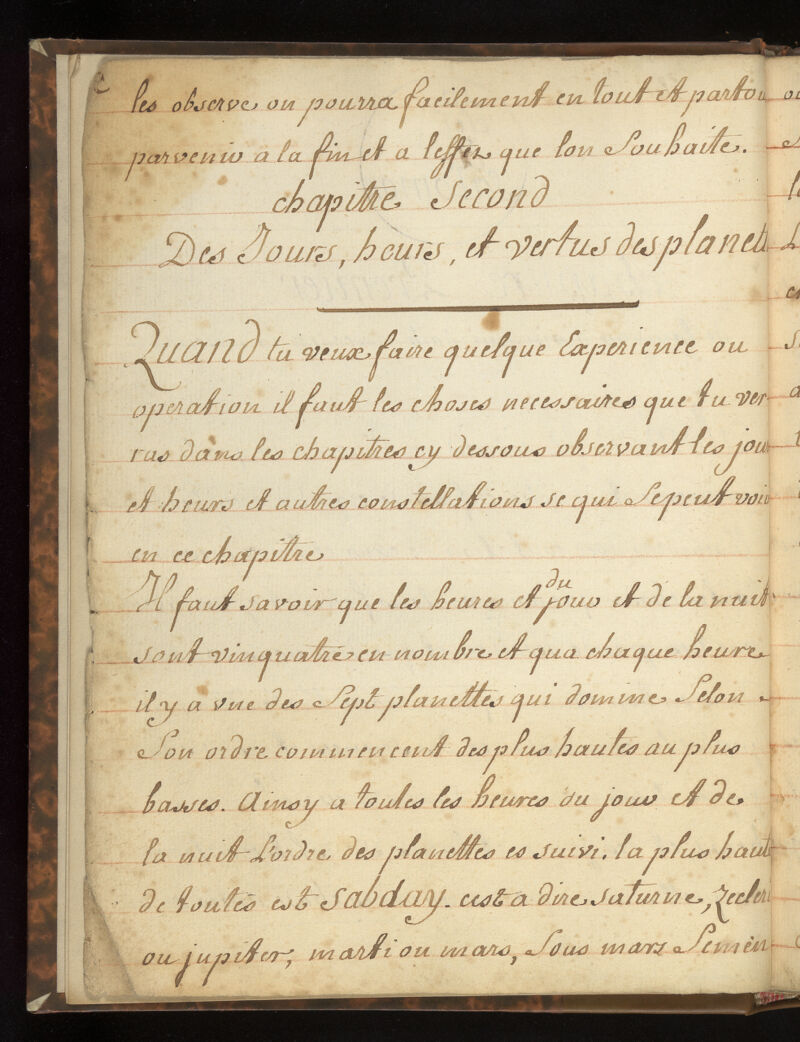 les observe on pourra facilement en tout et partou
parvenir a la fin et a leffet que lon Souhaite.
chapitre Second
Des Jours, heurs, et vertus des planett
Quand tu veux faire quelque Experience ou
operation il faut les choses necessaires que tu ver
ras dans les chapitres cy dessous observant les jou
et heurs et autres constellations se qui Sepeut voir
en ce chapitre
Il faut savoir que les heures et du jour et de la nuit
sont vinquatre en nombre et qua chaque heure
il y a vne des Sept planettes qui domine Selon
Son ordre commencent des plus hautes au plus
basses. Ainsy a toutes les heures du jour et de
la nuit L'ordre des planettes es suivi. la plus haut
de toutes est Sabday. cest a dire saturne,
ou jupiter, marti ou mars, Sous mars Semen